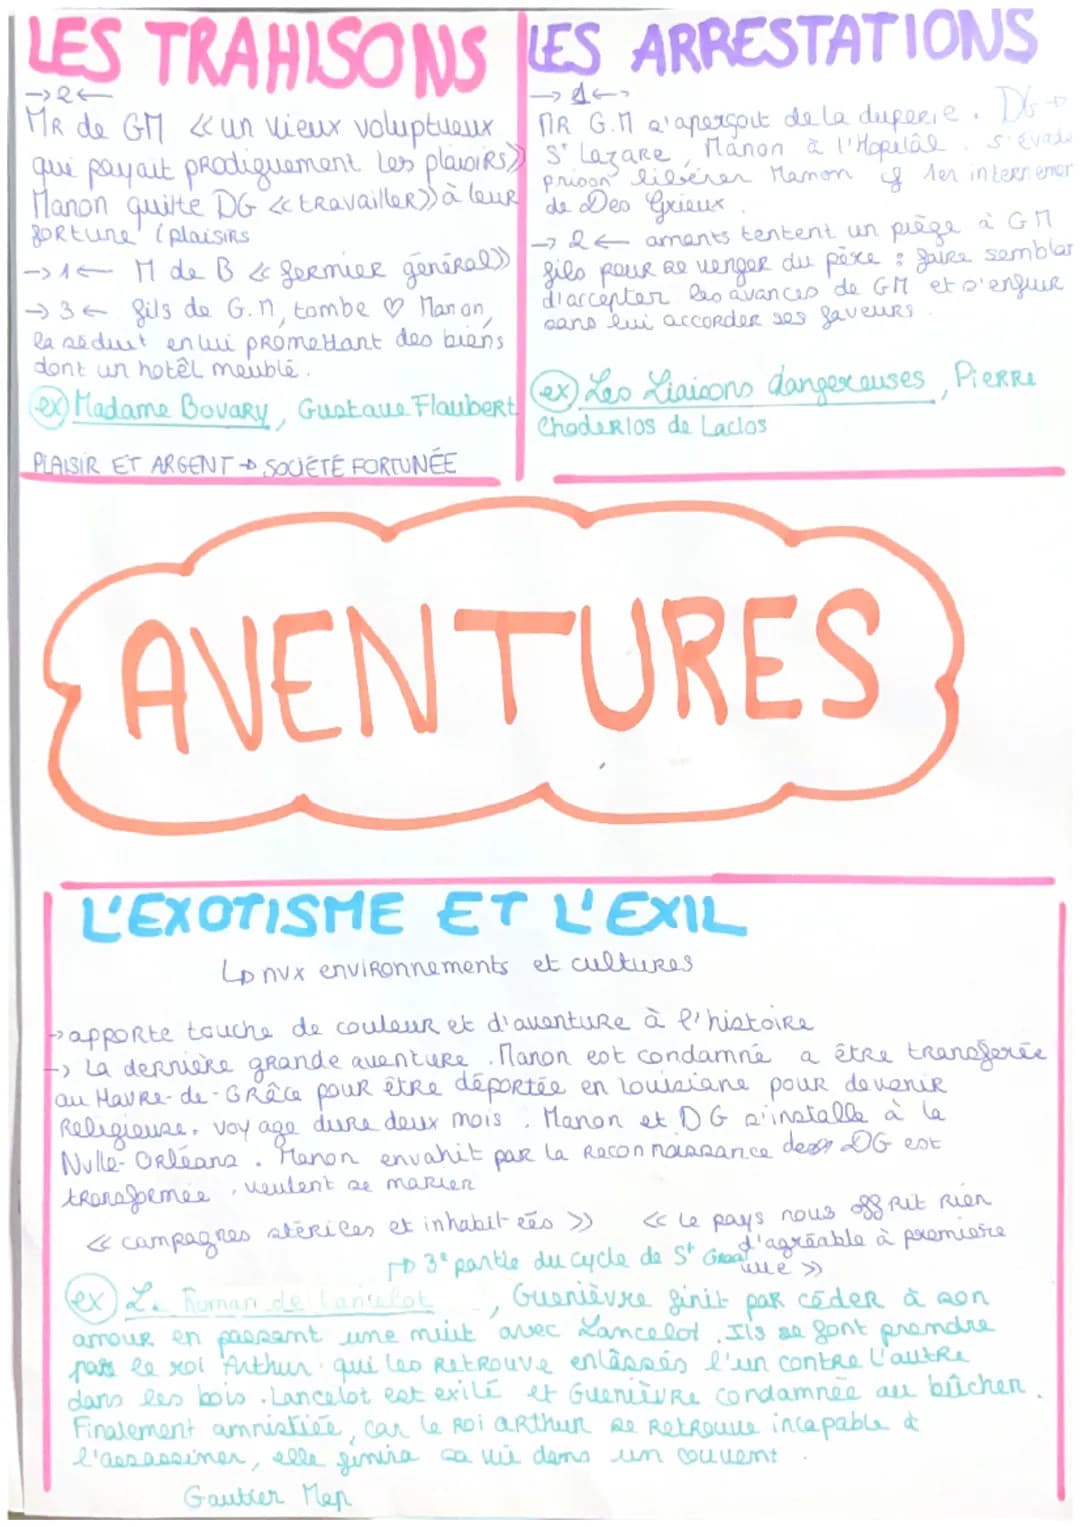 LES TRAHISONS
→2←
MR de GM << un vieux voluptueux
qui payait prodiguement les plaisirs>>
Manon quitte DG << travailler>> à leur
fortune / plaisirs
→1← M de B << fermier général>>
→3← fils de G.M, tombe ♡ Manon,
la séduit en lui promettant des biens
dont un hotêl meublé.
ex Madame Bovary, Gustave Flaubert
PLAISIR ET ARGENT → SOCIÉTÉ FORTUNÉE
LES ARRESTATIONS
→1←
MR G.M s'aperçoit de la duperie. DG →
S^t Lazare, Manon à l'Hopitâl. s'évade
prison libérer Manon 1er internemen
de Des Grieux.
→2← amants tentent un piège à GM
fils pour se venger du père : faire semblan
d'accepter les avances de GM et s'enfuir
sans lui accorder ses faveurs.
ex Les Liaisons dangereuses, Pierre
Choderlos de Laclos
AVENTURES
L'EXOTISME ET L'EXIL
↳ nvx environnements et cultures
→ apporte touche de couleur et d'aventure à l'histoire
→ La dernière grande aventure. Manon est condamné a être transferée
au Havre-de-Grâce pour être déportée en Louisiane pour devenir
Religieuse. voyage dure deux mois. Manon et DG s'installe à la
Nvlle-Orléans. Manon envahit par la reconnaissance de DG est
transformée, veulent se marier
<< campagnes stériles et inhabitées >>
<< Le pays nous offrit rien
d'agréable à première
vue >>
↱ 3^e partie du cycle de S^t Graal
ex Le Roman de Lancelot, Guenièvre finit par céder à son
amour en passant une nuit avec Lancelot. Ils se font prendre
par le roi Arthur qui les retrouve enlassés l'un contre l'autre
dans les bois. Lancelot est exilé et Guenièvre condamnée au bûcher.
Finalement amnistiée, car le Roi arthur se retrouve incapable de
l'assassiner, elle finira sa vie dans un couvent.
Gautier Map